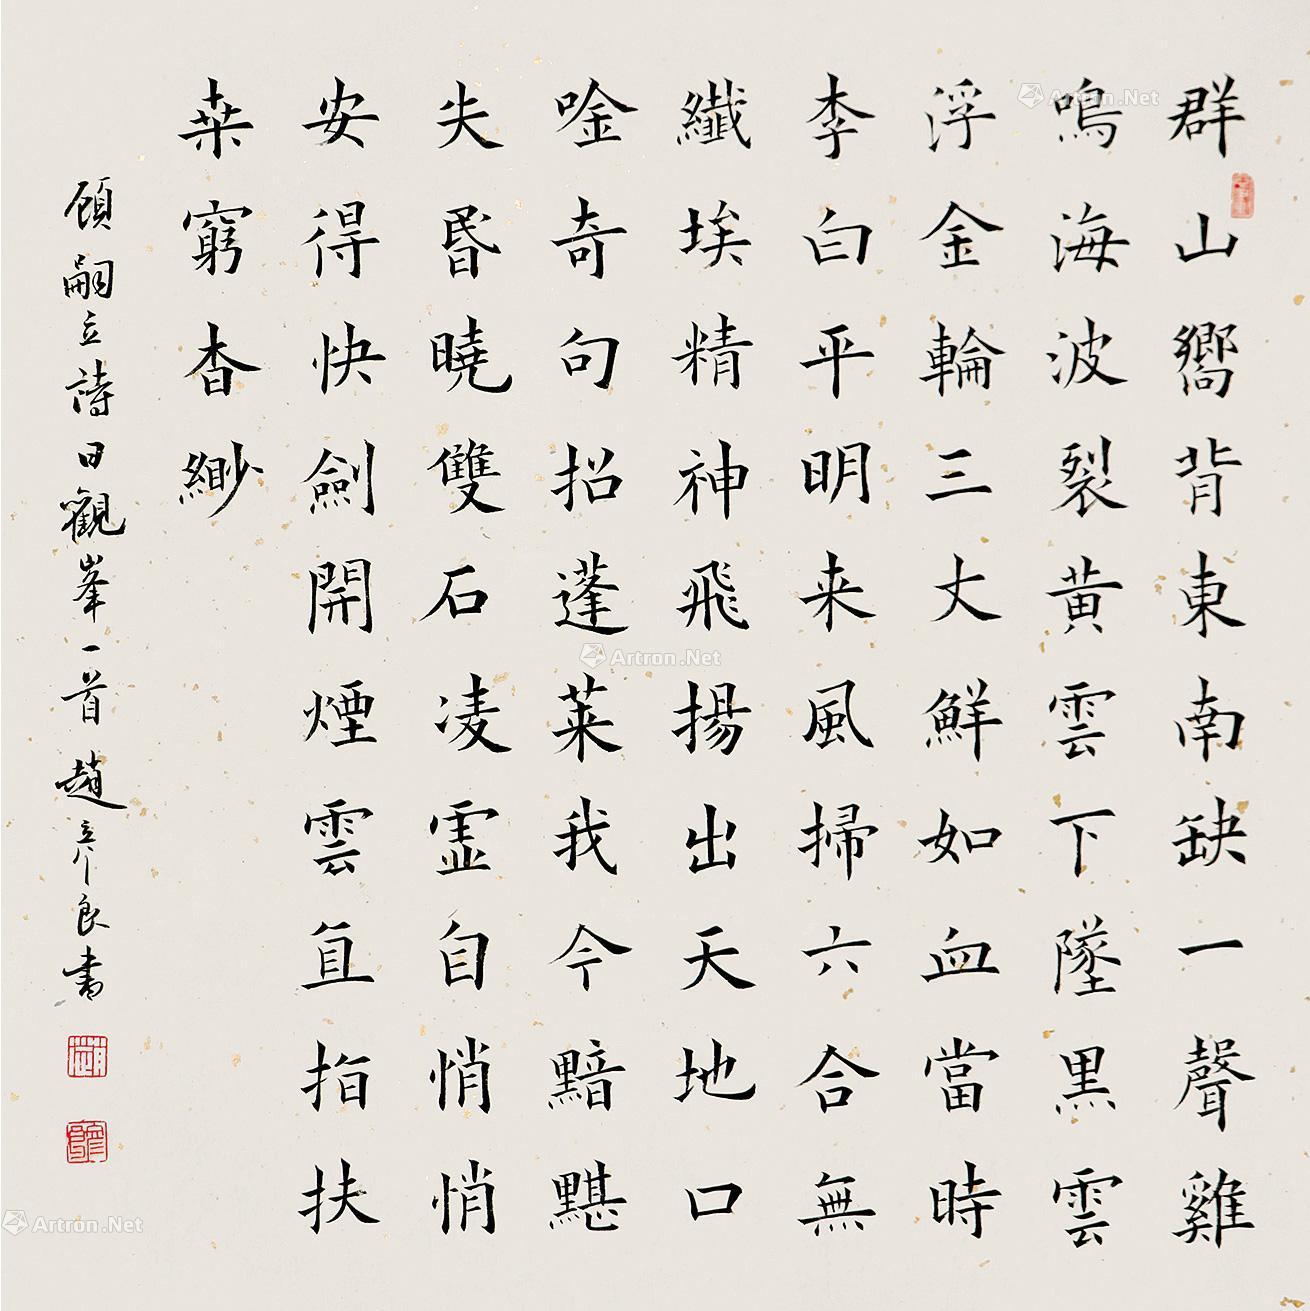 群山嚮背東南缺一聲雞
鳴海波裂黄雲下墜黒雲
浮金輪三丈鮮如血當時
李白平明来風掃六合無
纖埃精神飛揚出天地口
唫奇句招蓬萊我今黯黮
失昏曉雙石凌虛自悄悄
安得快劍開煙雲直指扶
桒窮杳緲
顧嗣立詩日觀峯一首趙彥良書
Artron.Net
Artron.Net
Artron.Net